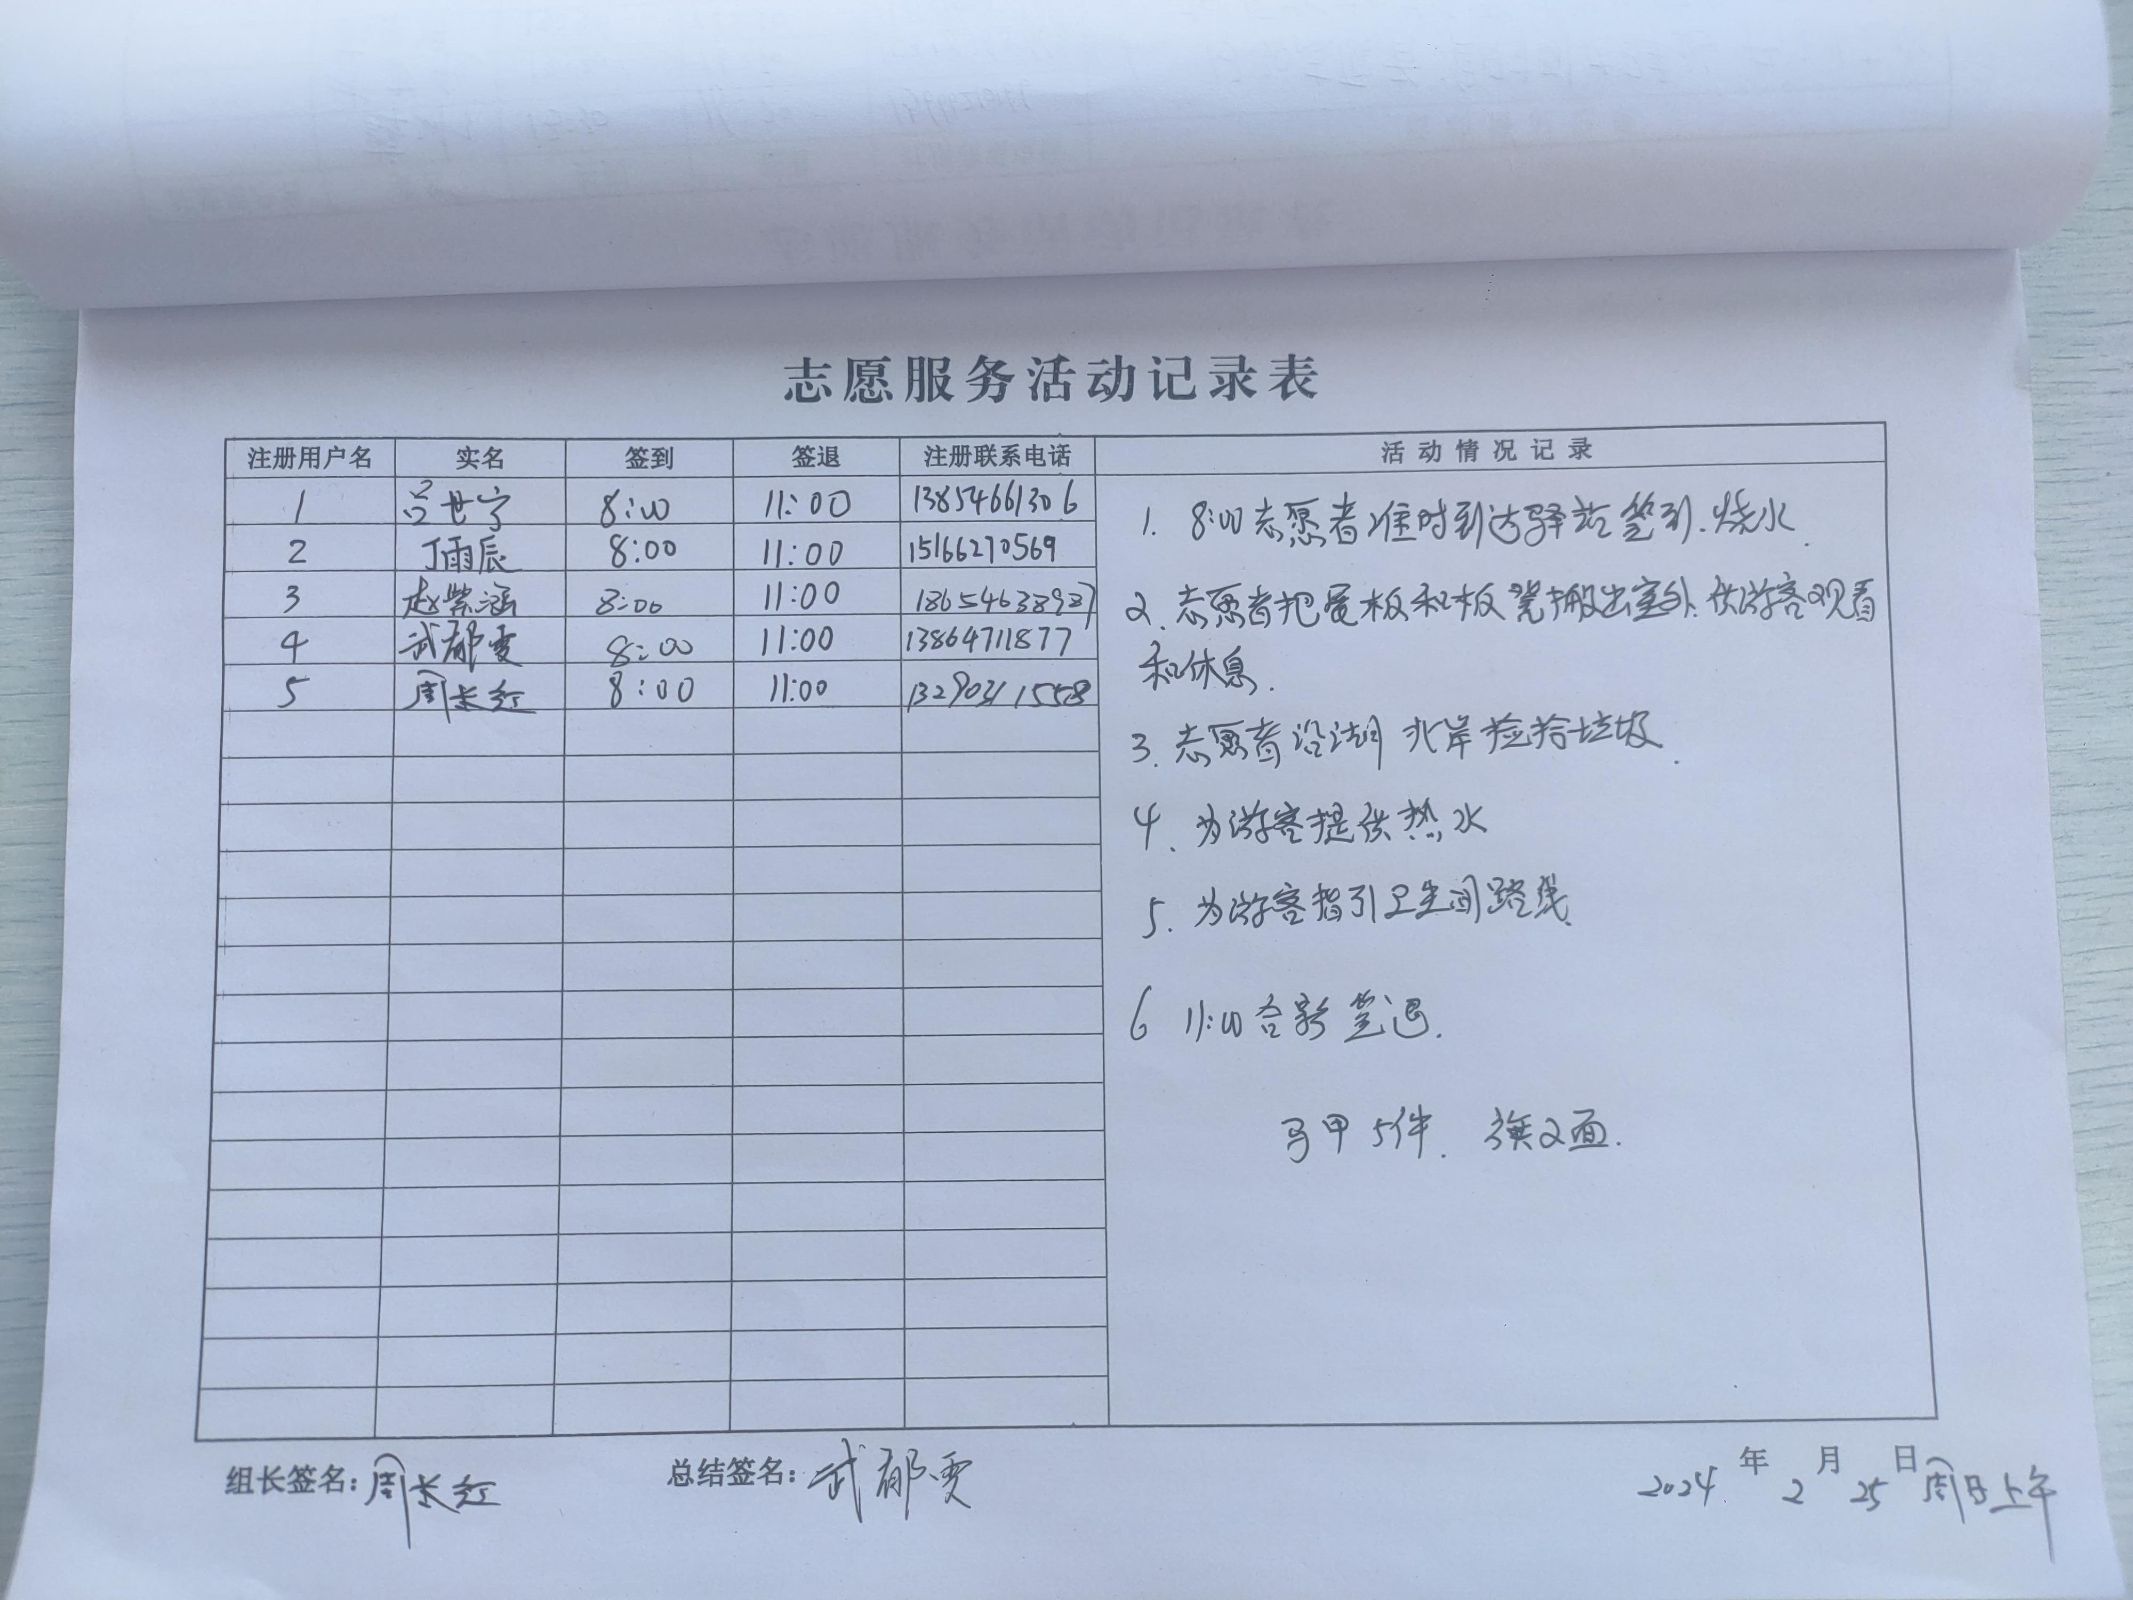 志愿服务活动记录表
注册用户名 实名 签到 签退 注册联系电话 活动情况记录
1 吕世宁 8:00 11:00 13854661306
2 丁雨辰 8:00 11:00 15166270569
3 赵紫涵 8:00 11:00 18654638987
4 武郁雯 8:00 11:00 13864711877
5 周长红 8:00 11:00 13290311558
1. 8:00志愿者准时到达驿站签到.烧水.
2.志愿者把展板和板凳搬出室外.供游客观看
和休息.
3.志愿者沿湖北岸捡拾垃圾.
4.为游客提供热水
5.为游客指引卫生间路线.
6 11:00合影签退.
马甲5件. 旗2面.
组长签名:周长红 总结签名:武郁雯 2024年2月25日周日上午